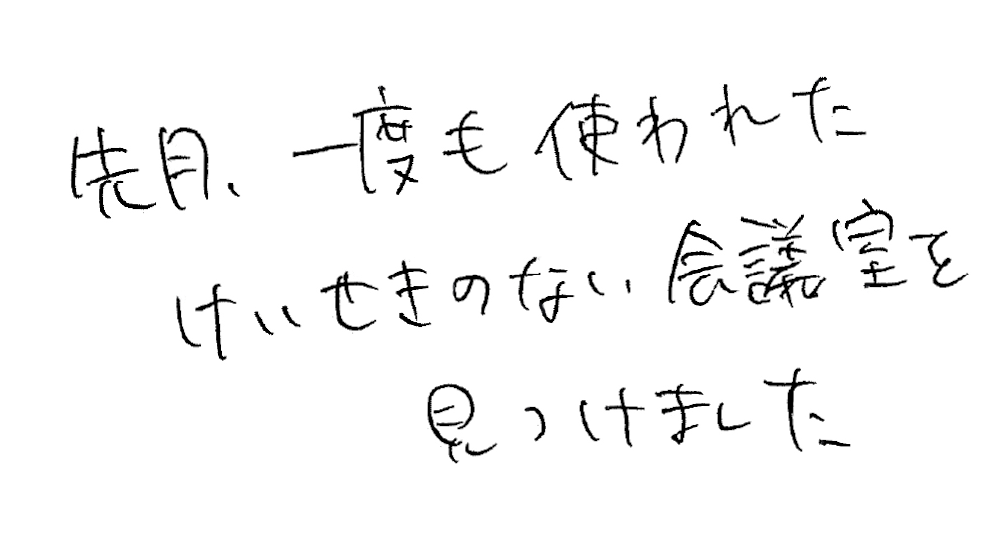 先月、一度も使われた
けいせきのない会議室を
見つけました